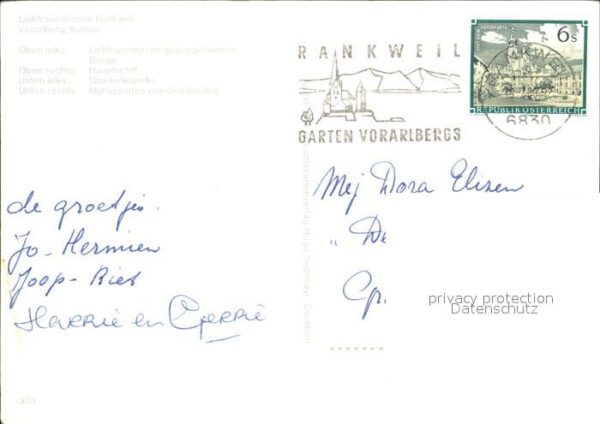 Liebfrauenkirche Rankweil
Vorarlberg, Austria
Oben links: Liebfrauenkirche gegen Schweizer
Berge
Oben rechts: Hauptschiff
Unten links: Gnadenkapelle
Unten rechts: Muttergottes vom Gnadenaltar
RANKWEIL
GARTEN VORARLBERGS
6s
REPUBLIK ÖSTERREICH
6830
de groetjes.
Jo - Hermien
Joop - Riet
HARRIE en GERRIE
Mej Dora Elizen
„ De
Gr.
privacy protection
Datenschutz
373